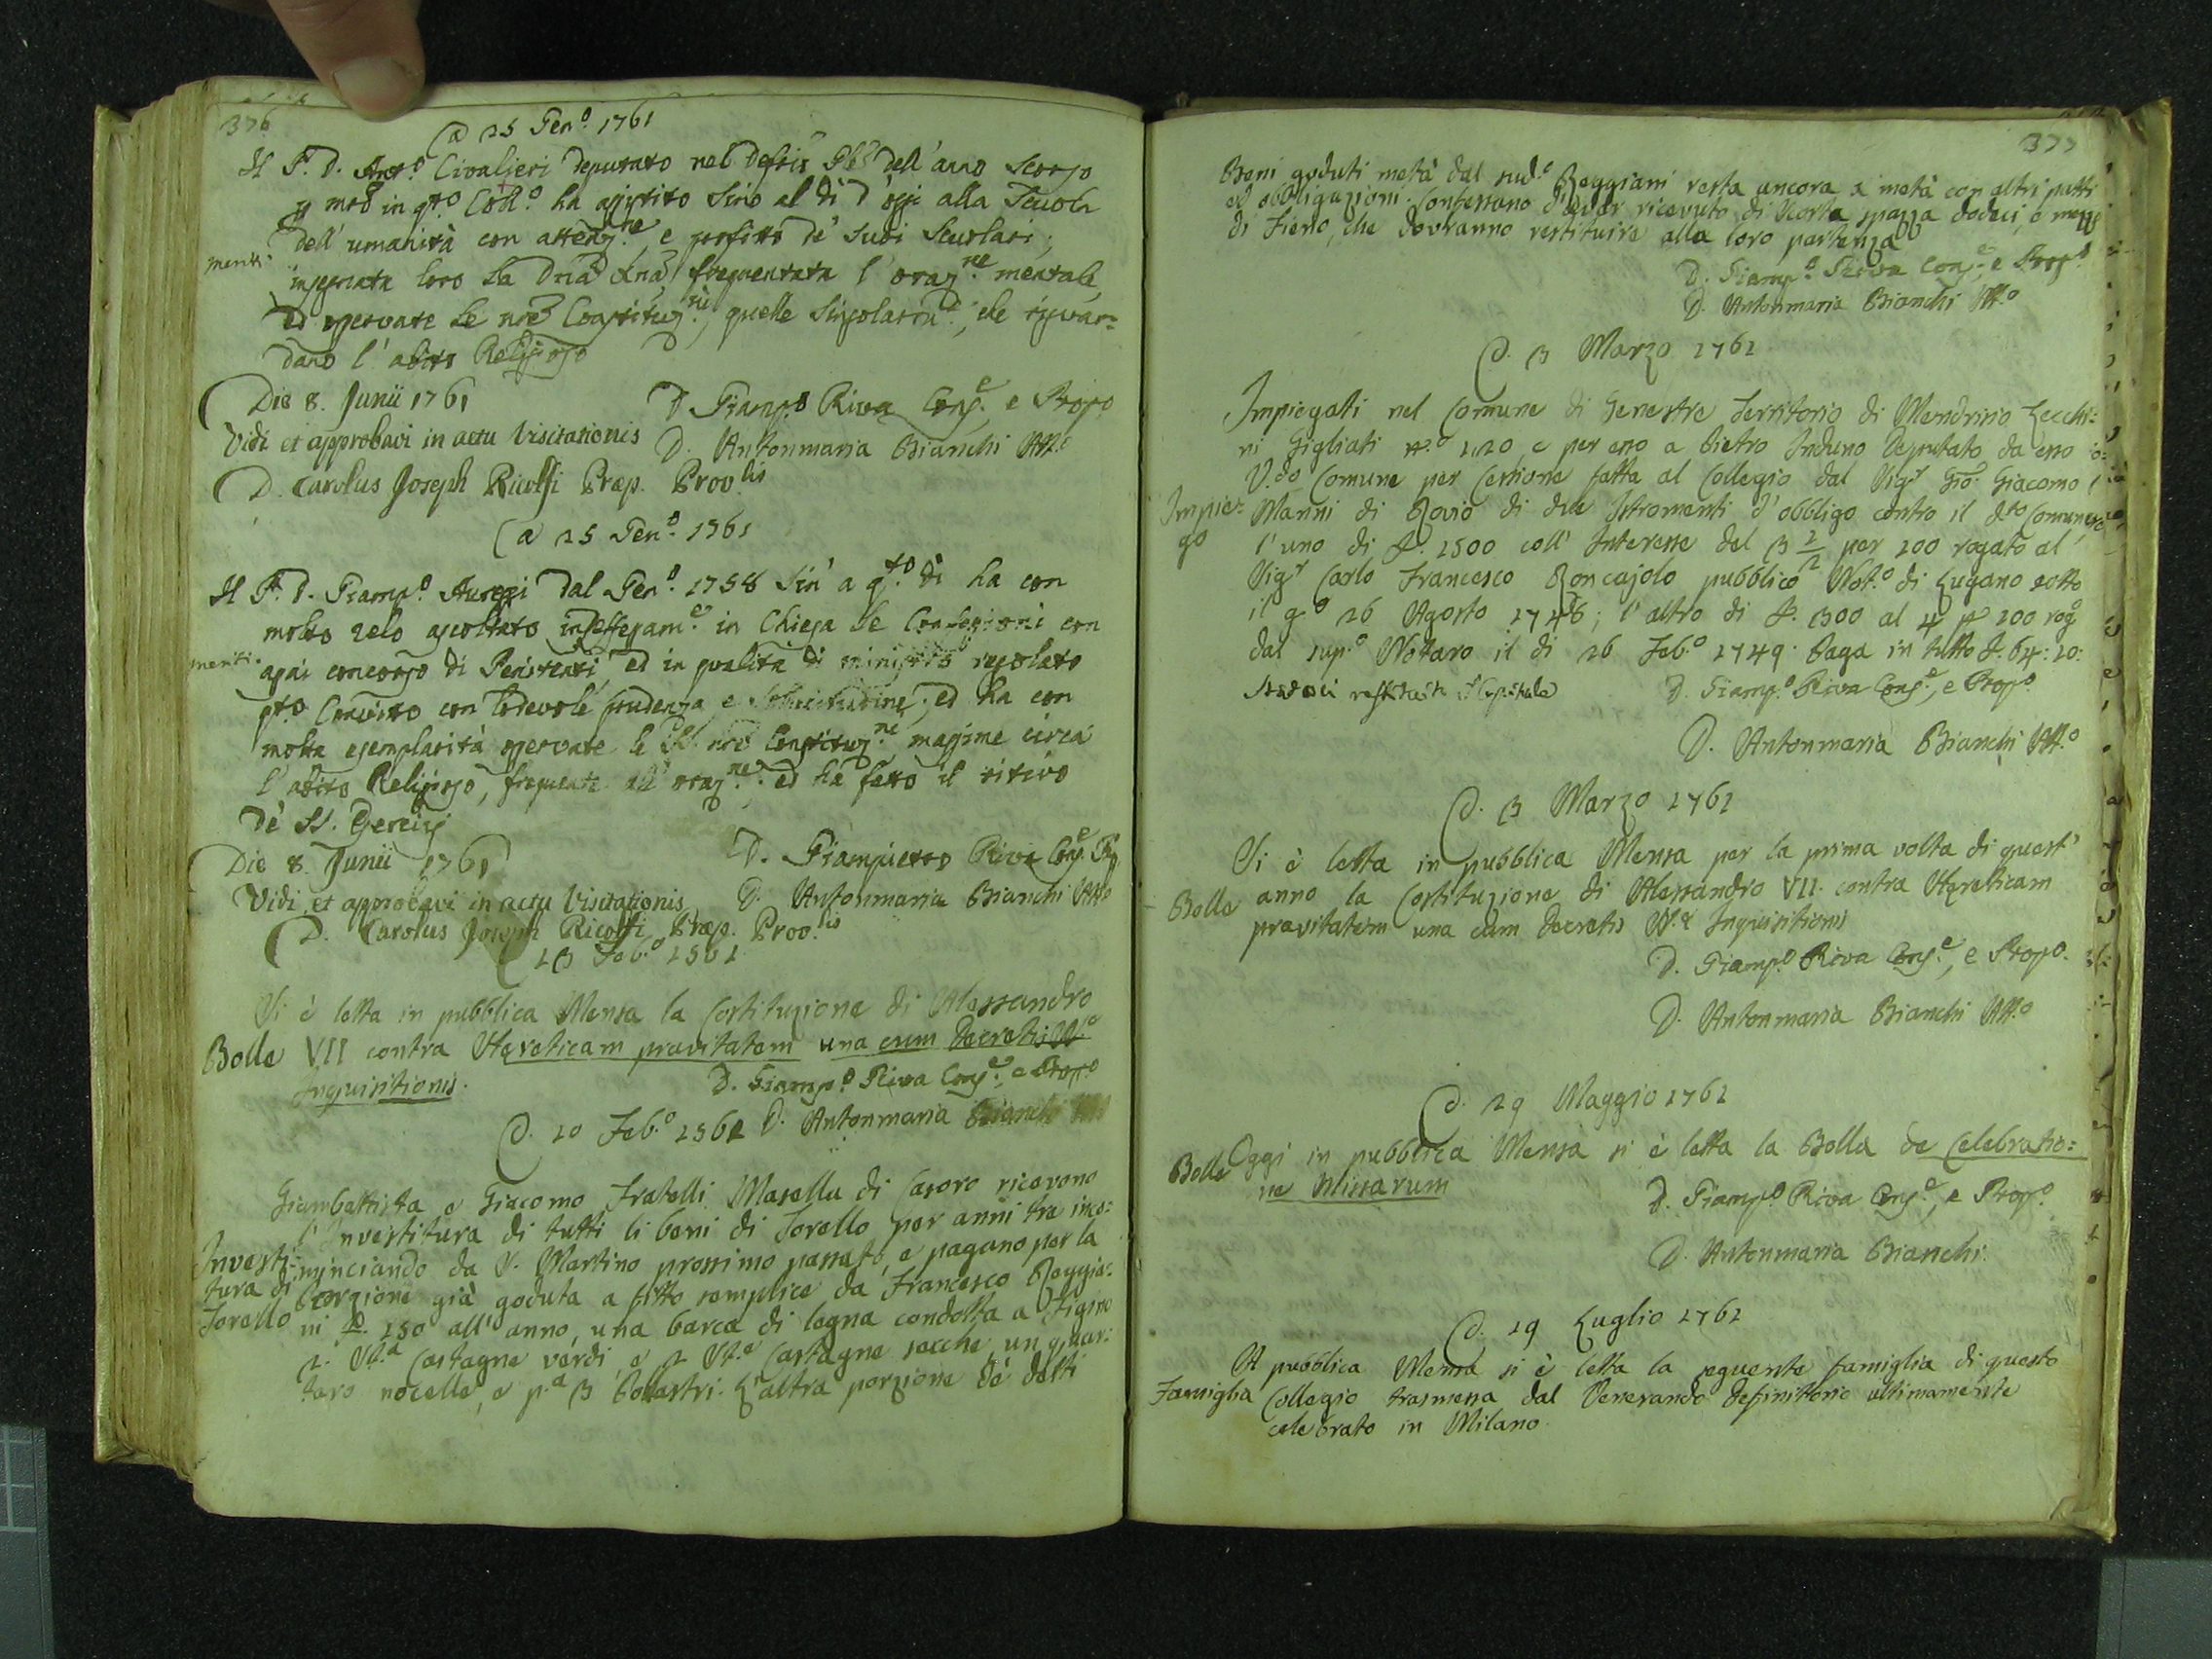 376
a 25 Gen.o 1761
Il P. D. Ant.o Civalieri deputato nel dell'anno scorso
in q.to Coll.o ha assistito sino al dì d'oggi alla Scuola
dell'umanità con attenz.ne, e profitto de' suoi Scuolari;
menti.
insegnata loro la Dna Xna, frequentata l'oraz.ne mentale,
ed osservate le nre Constituz.ni, quelle singolarm.e, che riguar=
dano l'abito Religioso
Die 8. Junii 1761
D. Giamp.o Riva Cons.e e Prop.o
Vidi et approbavi in actu Visitationis
D. Antonmaria Bianchi Att.o
D. Carolus Joseph Ricolfi Præp. Prov.lis
a 25 Gen.o 1761
Il P. D. Giamp.o Aureggi dal Gen.o 1758 sin' a q.to dì ha con
molto zelo ascoltato indefessam.e in Chiesa le Confessioni con
menti.
assai concorso di Penitenti, ed in qualità di ministro regolato
q.to Convitto con lodevole prudenza e sollecitudine; ed ha con
molta esemplarità osservate le SS. nre Constituz.ni massime circa
l'abito Religioso, frequente all'oraz.ne; ed ha fatto il ritiro
de' SS. Esercizj
Die 8. Junii 1761
D. Giampietro Riva Cons.e Pp
Vidi et approbavi in actu Visitationis
D. Antonmaria Bianchi Att.o
D. Carolus Joseph Ricolfi Præp. Prov.lis
10 Feb.o 1761
Si è letta in pubblica Mensa la Costituzione di Alessandro
Bolle VII contra Hæreticam pravitatem una cum Decretis
Inquisitionis.
D. Giamp.o Riva Cons.e, e Prop.o
D. 10 Feb.o 1761 D. Antonmaria Bianchi Att.o
Giambattista e Giacomo Fratelli Masella di Casoro ricevono
l'Investitura di tutti li beni di Torello per anni tre inco=
Investi= minciando da S. Martino prossimo passato, e pagano per la
tura di porzione già goduta a fitto semplice da Francesco Reggia=
Torello ni 150 all'anno, una barca di legna condotta a Figino
2. St.a Castagne verdi, e 2 St.a Castagne secche, un quar=
taro nocelle, e p.a 3 Pollastri. L'altra porzione de' detti
377
Beni goduti metà dal sud.o Reggiani resta ancora a metà con altri patti
ed obbligazioni. Confessano d'aver ricevuto di Scorta spazza dodeci, e mezzo
di Fieno, che dovranno restituire alla loro partenza
D. Giamp.o Riva Cons.e, e Prop.o
D. Antonmaria Bianchi Att.o
D. 3 Marzo 1761
Impiegati nel Comune di Genestre Territorio di Mendrisio Zecchi=
ni Gigliati n.o 120, e per esso a Pietro Induno Deputato da esso
V.do Comune per Cessione fatta al Collegio dal Sig.r Gio. Giacomo
Impie= Manni di Rovio di due Istromenti d'obbligo contro il d.to Comune,
go l'uno di L. 1500 coll'Interesse del 3 1/2 per 100 rogato al
Sig.r Carlo Francesco Roncajolo pubblico Not.o di Lugano sotto
il g.o 26 Agosto 1746; l'altro di L. 300 al 4 p 100 rog.o
dal sup.o Notaro il di 26 Feb.o 1749. Paga in tutto L. 64: 10:
D. Giamp.o Riva Cons.e, e Prop.o
D. Antonmaria Bianchi Att.o
D. 3 Marzo 1761
Si è letta in pubblica Mensa per la prima volta di quest'
Bolle anno la Costituzione di Alessandro VII. contra Hæreticam
pravitatem una cum Decretis Inquisitionis
D. Giamp.o Riva Cons.e, e Prop.o
D. Antonmaria Bianchi Att.o
D. 29 Maggio 1761
Bolle Oggi in pubblica Mensa si è letta la Bolla de Celebratio=
ne Missarum
D. Giamp.o Riva Cons.e, e Prop.o
D. Antonmaria Bianchi.
D. 19 Luglio 1761
A pubblica Mensa si è letta la seguente famiglia di questo
Famiglia Collegio trasmessa dal Venerando Definittorio ultimamente
celebrato in Milano.